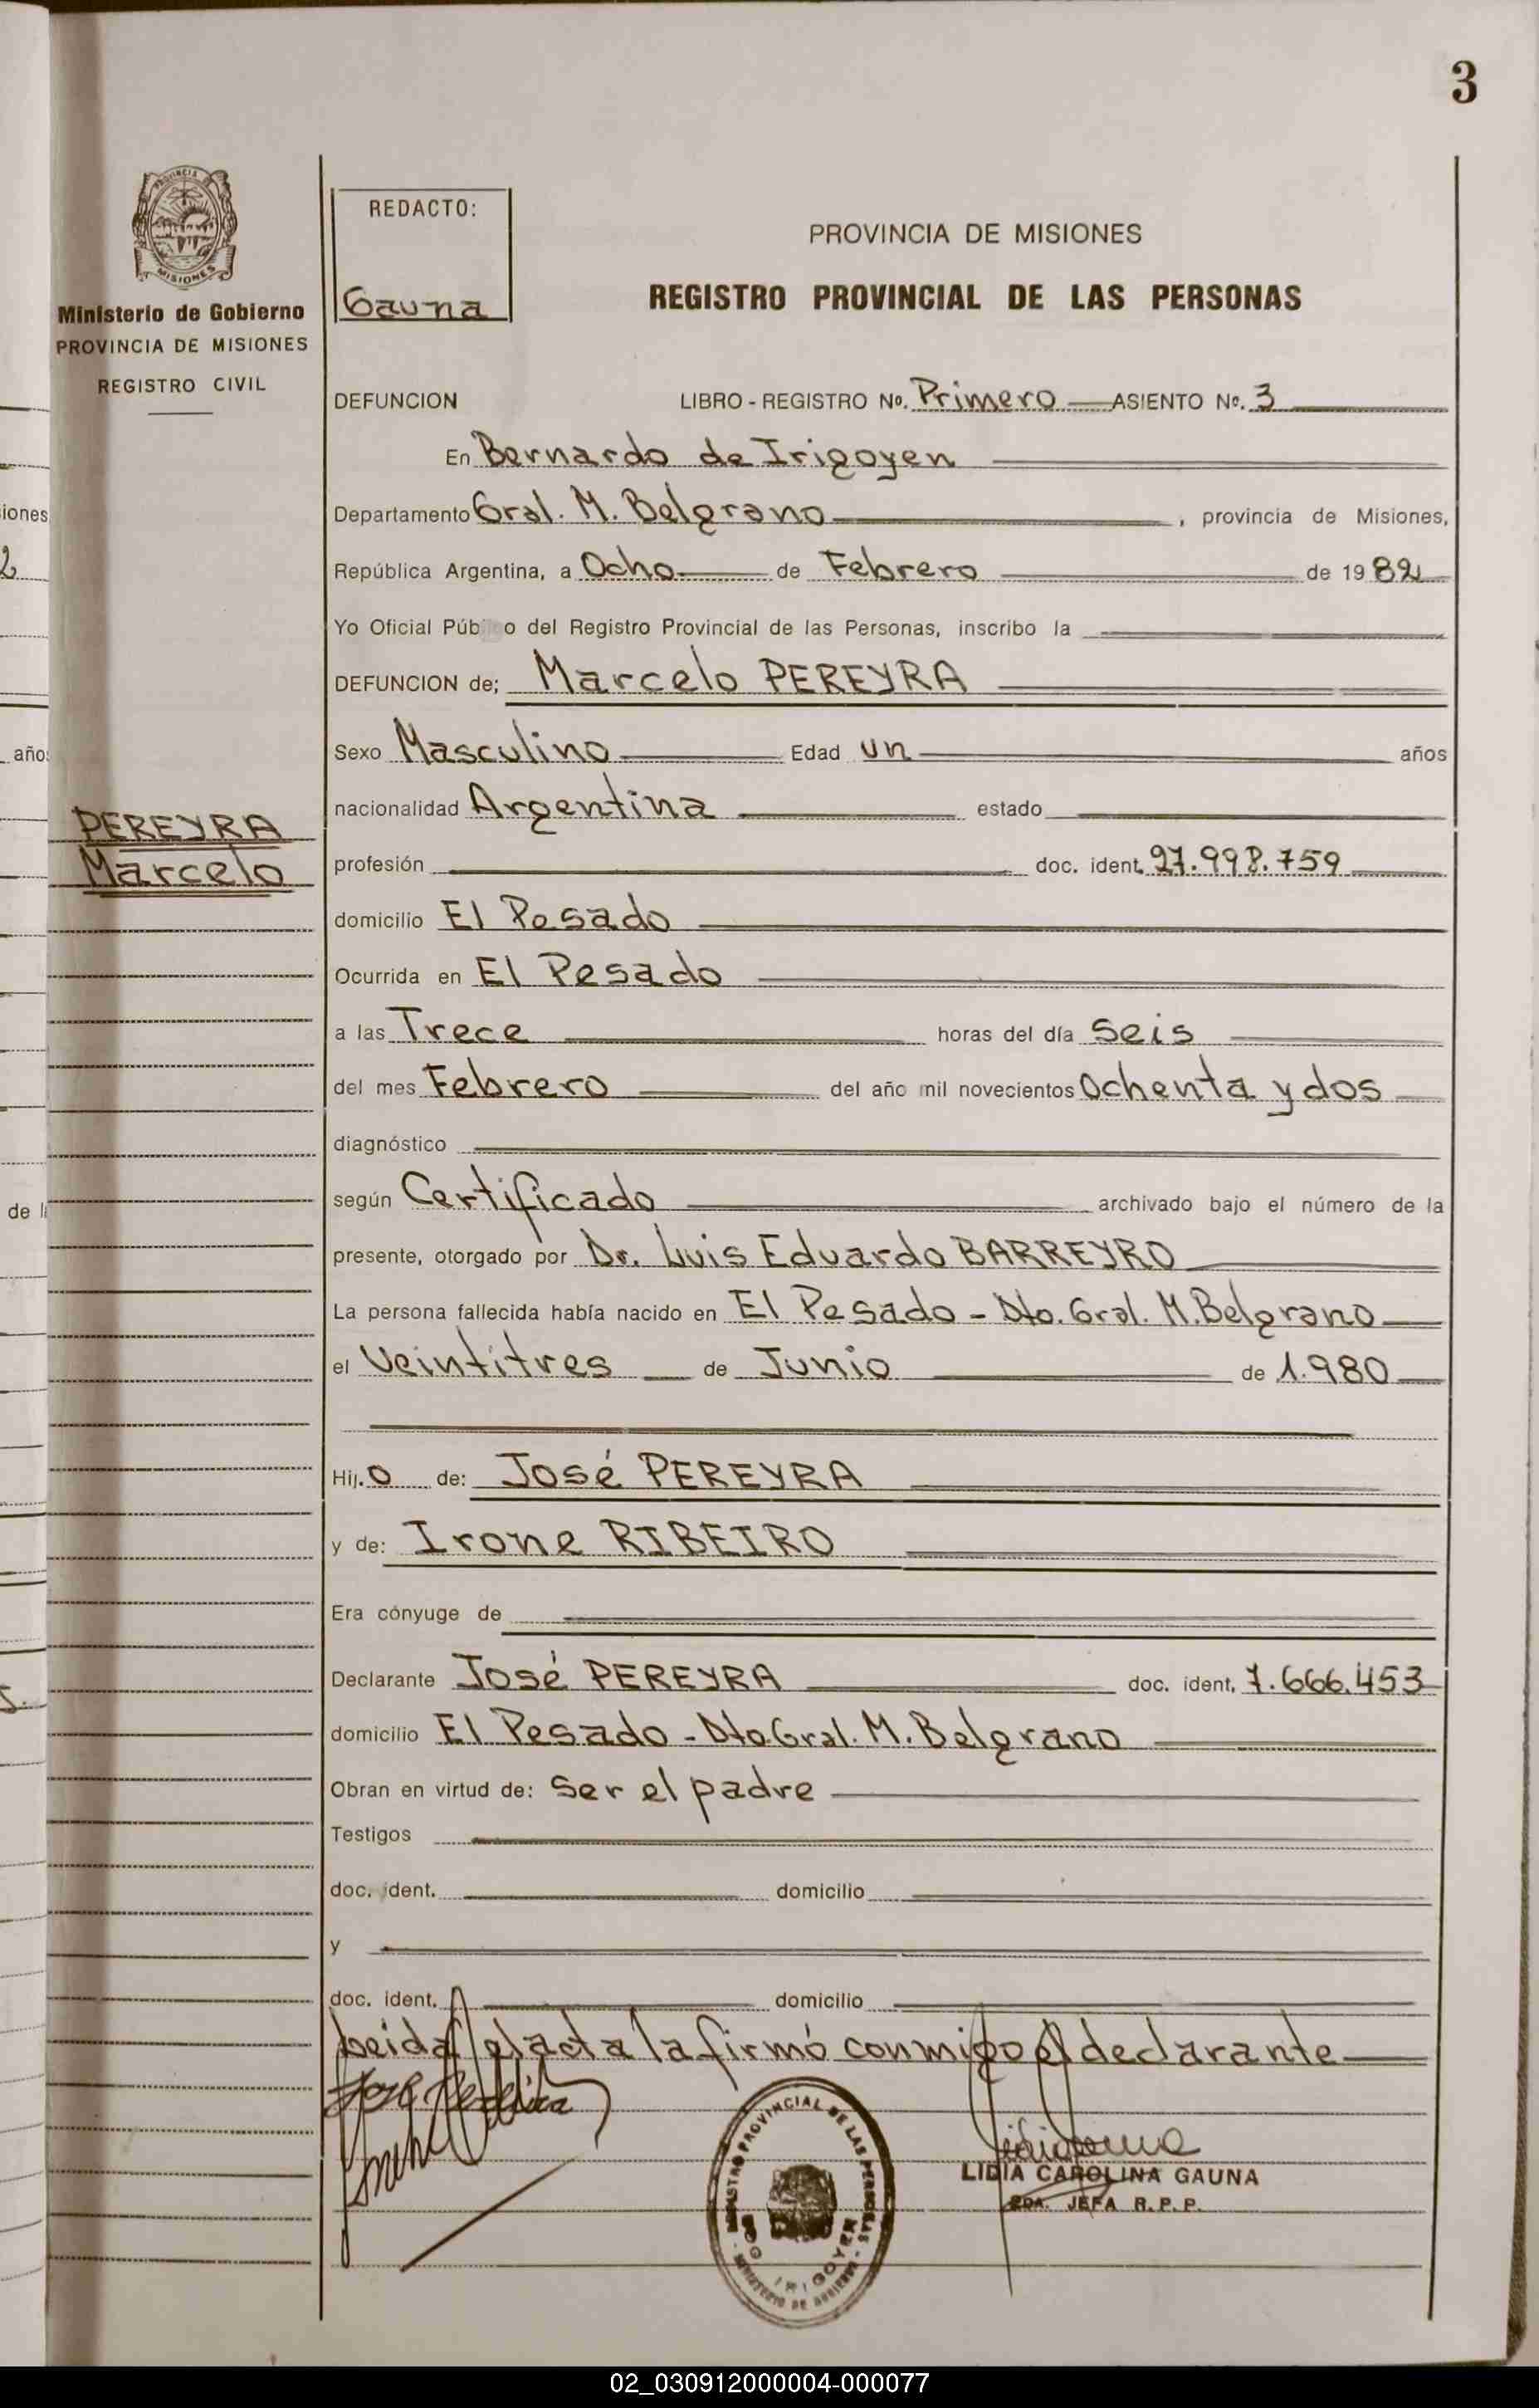 3
PROVINCIA DE
MISIONES
Ministerio de Gobierno
PROVINCIA DE MISIONES
REGISTRO CIVIL
REDACTO:
Gauna
PROVINCIA DE MISIONES
REGISTRO PROVINCIAL DE LAS PERSONAS
DEFUNCION LIBRO - REGISTRO Nº. Primero ASIENTO Nº. 3
En Bernardo de Irigoyen
Departamento Gral. M. Belgrano, provincia de Misiones,
iones
República Argentina, a Ocho de Febrero de 1982
2
Yo Oficial Público del Registro Provincial de las Personas, inscribo la
DEFUNCION de; Marcelo PEREYRA
Sexo Masculino Edad un años
año
nacionalidad Argentina estado
PEREYRA
Marcelo
profesión doc. ident. 27.998.759
domicilio El Pesado
Ocurrida en El Pesado
a las Trece horas del día Seis
del mes Febrero del año mil novecientos Ochenta y dos
diagnóstico
según Certificado archivado bajo el número de la
de l
presente, otorgado por Dr. Luis Eduardo BARREYRO
La persona fallecida había nacido en El Pesado - Dto. Gral. M. Belgrano
el Veintitres de Junio de 1.980
Hij.o de: José PEREYRA
y de: Irone RIBEIRO
Era cónyuge de
Declarante José PEREYRA doc. ident. 7.666.453
domicilio El Pesado - Dto Gral. M. Belgrano
Obran en virtud de: Ser el padre
Testigos
doc. ident. domicilio
y
doc. ident. domicilio
Leida el acta la firmó conmigo el declarante
REGISTRO PROVINCIAL DE LAS PERSONAS
BDO. IRIGOYEN
MINISTERIO DE GOBIERNO
LIDIA CAROLINA GAUNA
2DA. JEFA R. P. P.
02_030912000004-000077